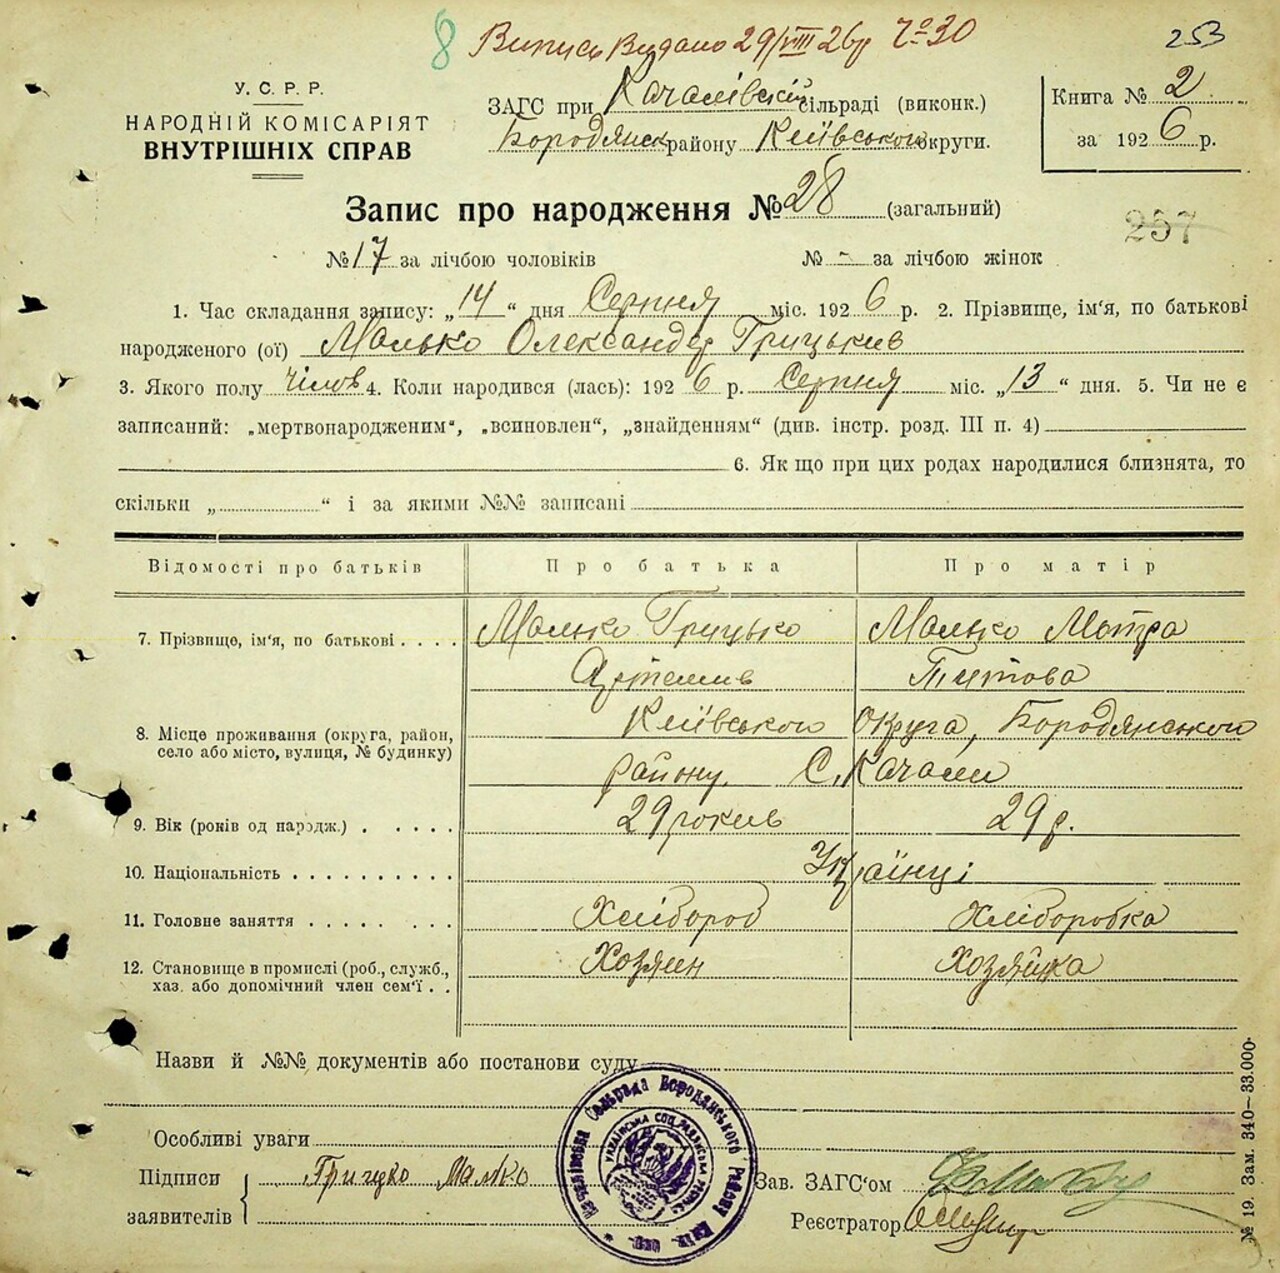 8 Випись Видано 29/VIII 26р № 30
253
У. С. Р. Р.
НАРОДНІЙ КОМІСАРІЯТ
ВНУТРІШНІХ СПРАВ
ЗАГС при Качалівскій сільраді (виконк.)
Бородянск району Київського округи.
Книга № 2
за 1926 р.
Запис про народження № 28 (загальний)
257
№ 17 за лічбою чоловіків № - за лічбою жінок
1. Час складання запису: „14“ дня Серпня міс. 1926 р. 2. Прізвище, ім‘я, по батькові
народженого (ої) Малько Олександер Грицьків
3. Якого полу чілов 4. Коли народився (лась): 1926 р. Серпня міс. „13“ дня. 5. Чи не є
записаний: „мертвонародженим“, „всиновлен“, „знайденням“ (див. інстр. розд. III п. 4)
6. Як що при цих родах народилися близнята, то
скільки „ “ і за якими №№ записані
Відомості про батьків Про батька Про матір
7. Прізвище, ім‘я, по батькові . . . . Малько Грицько Малько Мотра
Артемив Титова
8. Місце проживання (округа, район, Київського Округа, Бородянського
село або місто, вулиця, № будинку) району, С. Качали
9. Вік (років од народж.) . . . . . 29 років 29 р.
10. Національність . . . . . . . . . . Українці
11. Головне заняття . . . . . . . . Хлібороб Хліборобка
12. Становище в промислі (роб., служб., Хозяин Хозяйка
хаз. або допомічний член сем‘ї . .
Назви й №№ документів або постанови суду
Особливі уваги
Підписи Грицко Малко
заявителів
Зав. ЗАГС‘ом
Реєстратор
Сельрада Бородянського Району Київ. окр.
УКРАЇНСЬКА СОЦ. РАДЯНСЬКА РЕСПУБ
№ 19. Зам. 340—33.000.